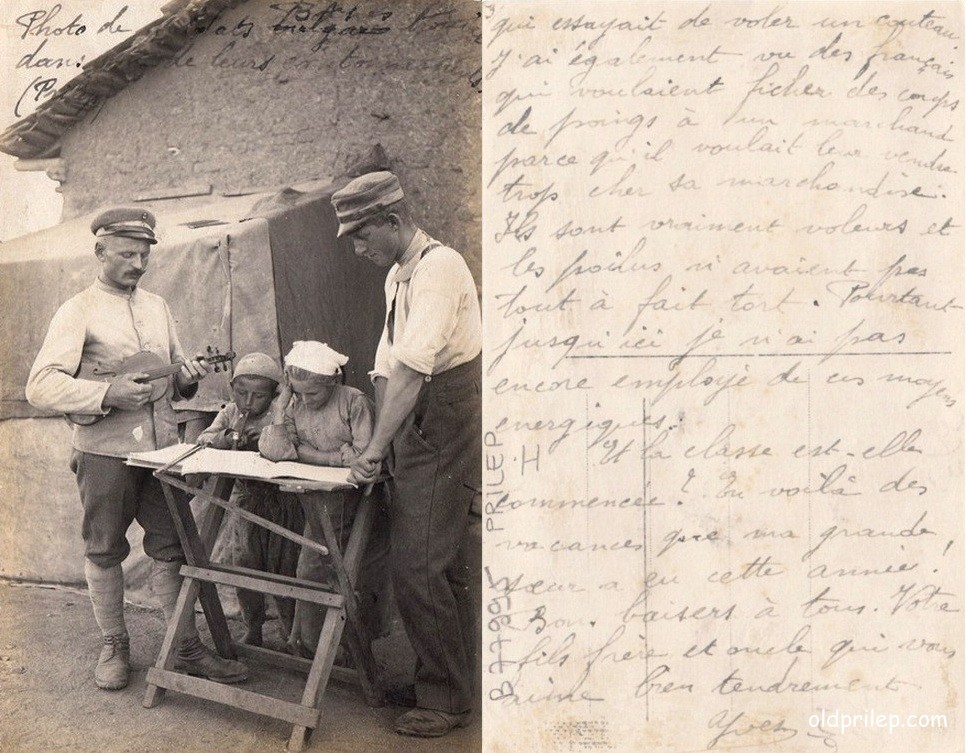 Photo de soldats bulgares
dans de leurs cantonnements
qui essayait de voler un couteau.
J'ai également vu des français
qui voulaient ficher des coups
de poings à un marchand
parce qu'il voulait leur vendre
trop cher sa marchandise.
Ils sont vraiment voleurs et
les poilus n'avaient pas
tout à fait tort. Pourtant
jusqu'ici je n'ai pas
encore employé de ces moyens
énergiques.
Et la classe est-elle
commencée? En voilà des
vacances que ma grande
sœur a eu cette année!
Bons baisers à tous. Votre
fils frère et oncle qui vous
aime bien tendrement
Yves
PRILEP
H
B 77995
oldprilep.com